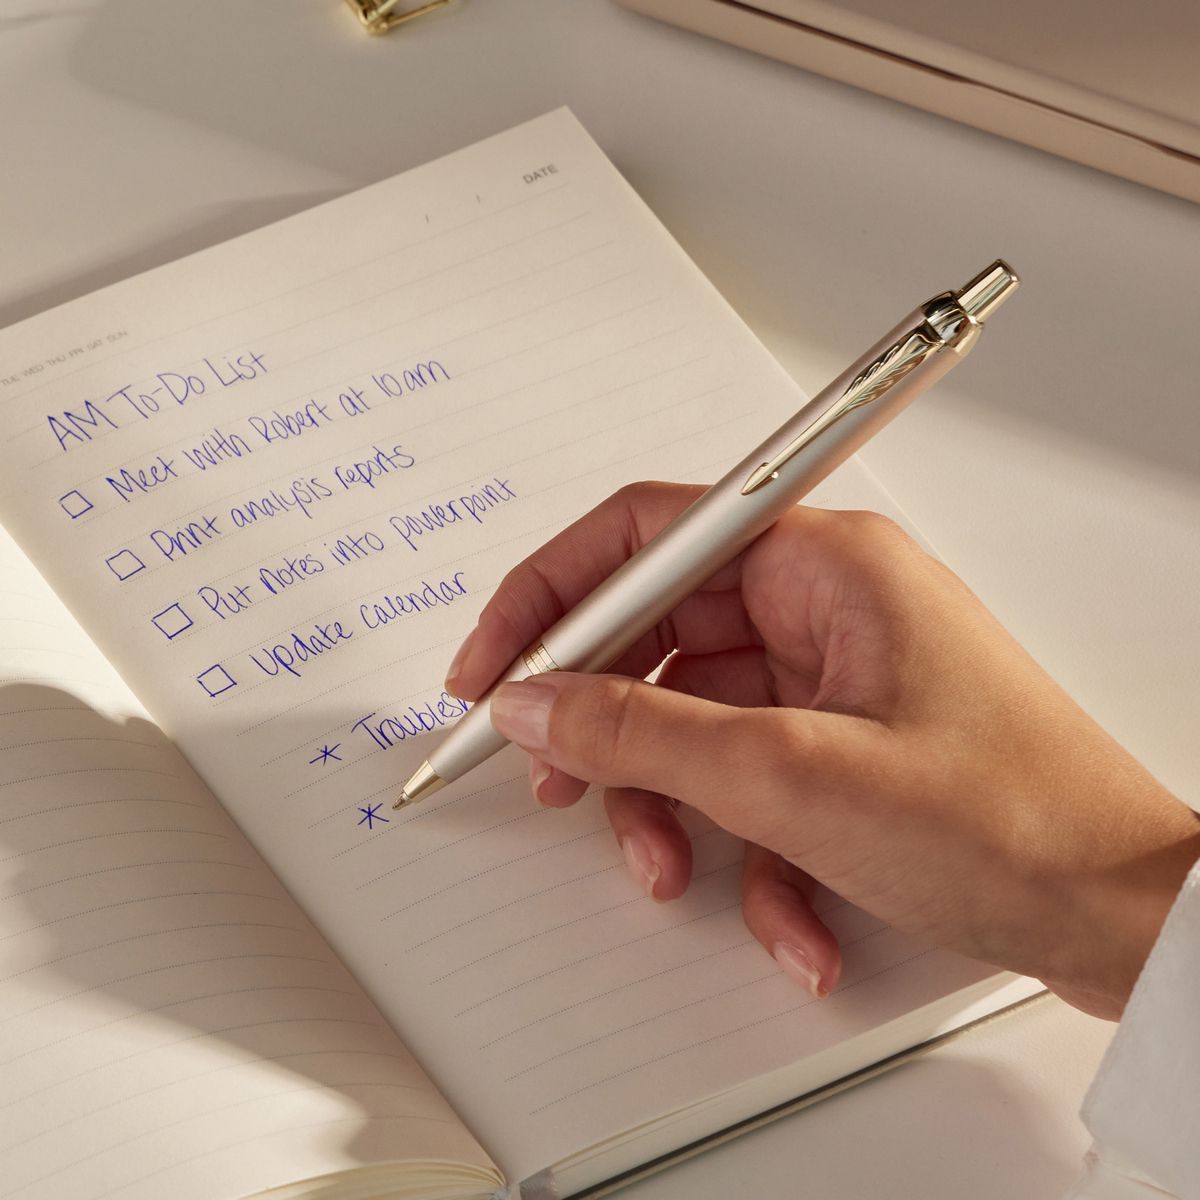 DATE
TUE WED THU FRI SAT SUN
AM To-Do List
Meet with Robert at 10am
Print analysis reports
Put notes into powerpoint
Update Calendar